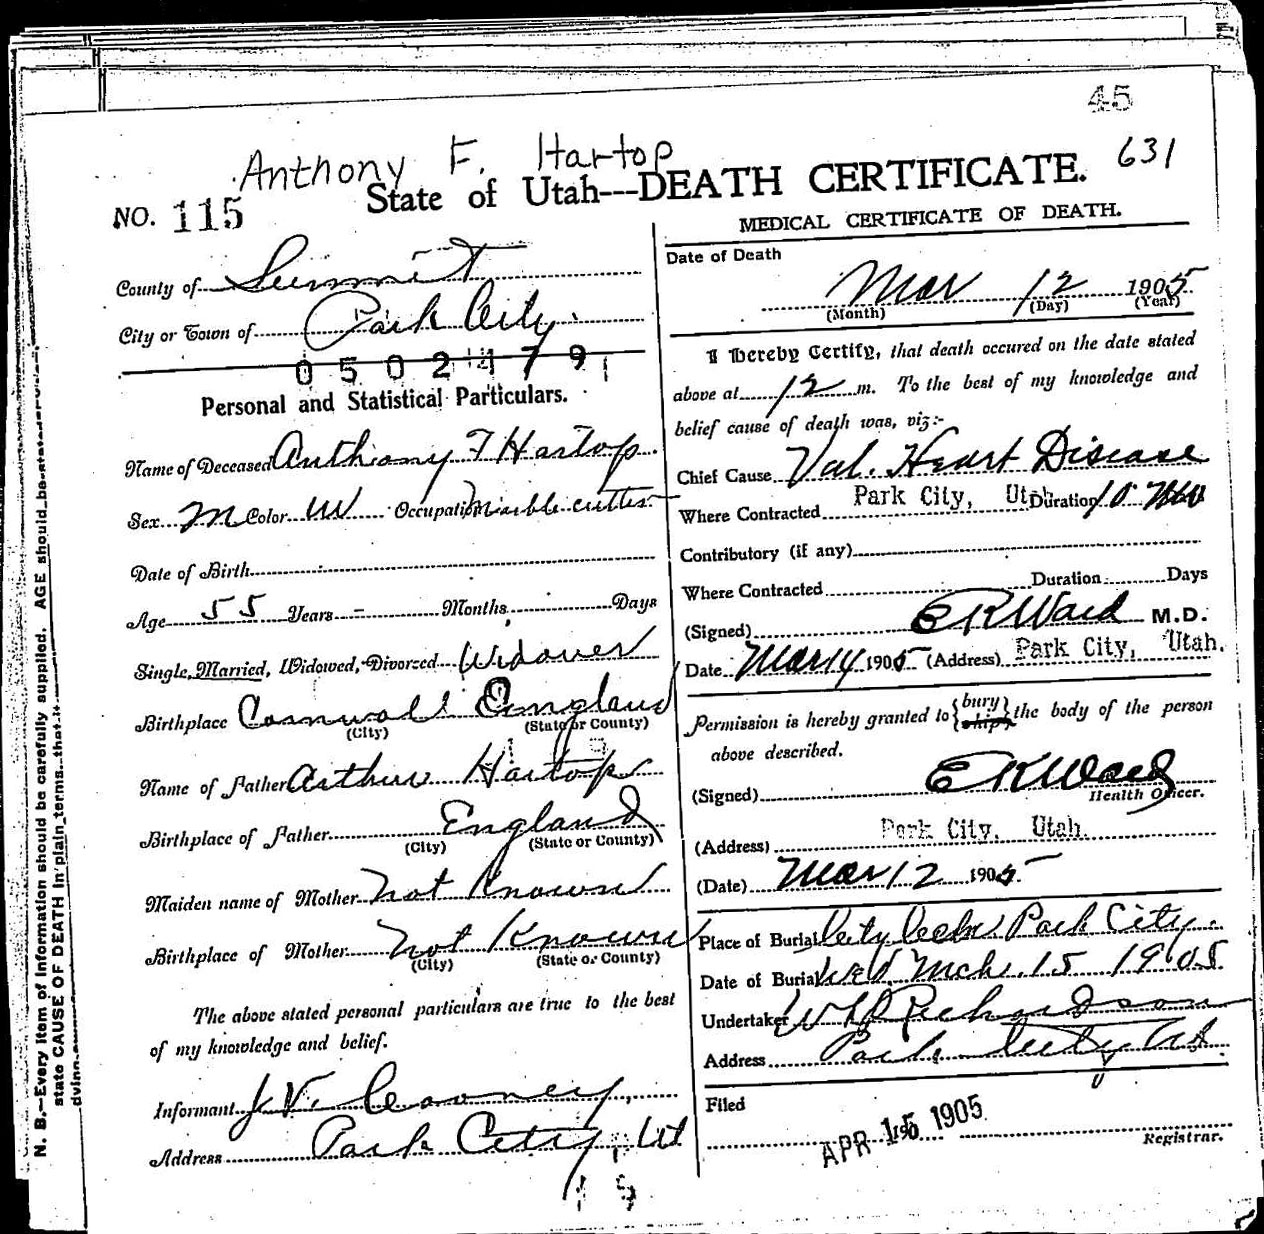 45
631
Anthony F. Hartop
State of Utah---DEATH CERTIFICATE.
NO. 115
County of Summit
City or Town of Park City.
0502479
Personal and Statistical Particulars.
Name of Deceased Anthony F Hartop
Sex M Color W Occupation Marble cutter
Date of Birth
Age 55 Years - Months Days
Single, Married, Widowed, Divorced Widower
Birthplace Cornwall England
(City) (State or County)
Name of Father Arthur Hartop
Birthplace of Father England
(City) (State or County)
Maiden name of Mother Not Known
Birthplace of Mother Not Known
(City) (State or County)
The above stated personal particulars are true to the best
of my knowledge and belief.
Informant J.V. Cooney
Address Park City, Ut
MEDICAL CERTIFICATE OF DEATH.
Date of Death
Mar 12 1905
(Month) (Day) (Year)
I Hereby Certify, that death occured on the date stated
above at 12 m. To the best of my knowledge and
belief cause of death was, viz:-
Chief Cause Val. Heart Disease
Where Contracted Park City, Utah Duration 10
Contributory (if any)
Where Contracted Duration Days
(Signed) E R Ward M.D.
Date Mar 14 1905 (Address) Park City, Utah.
Permission is hereby granted to {bury ship} the body of the person
above described.
(Signed) E R Ward
Health Officer.
(Address) Park City, Utah.
(Date) Mar 12 1905
Place of Burial City Cem Park City.
Date of Burial Wed Mch. 15 1905
Undertaker W Richardson
Address Park City Ut.
Filed
APR 15 1905 190
Registrar.
N. B.—Every item of information should be carefully supplied. AGE should be
state CAUSE OF DEATH in plain terms, that it